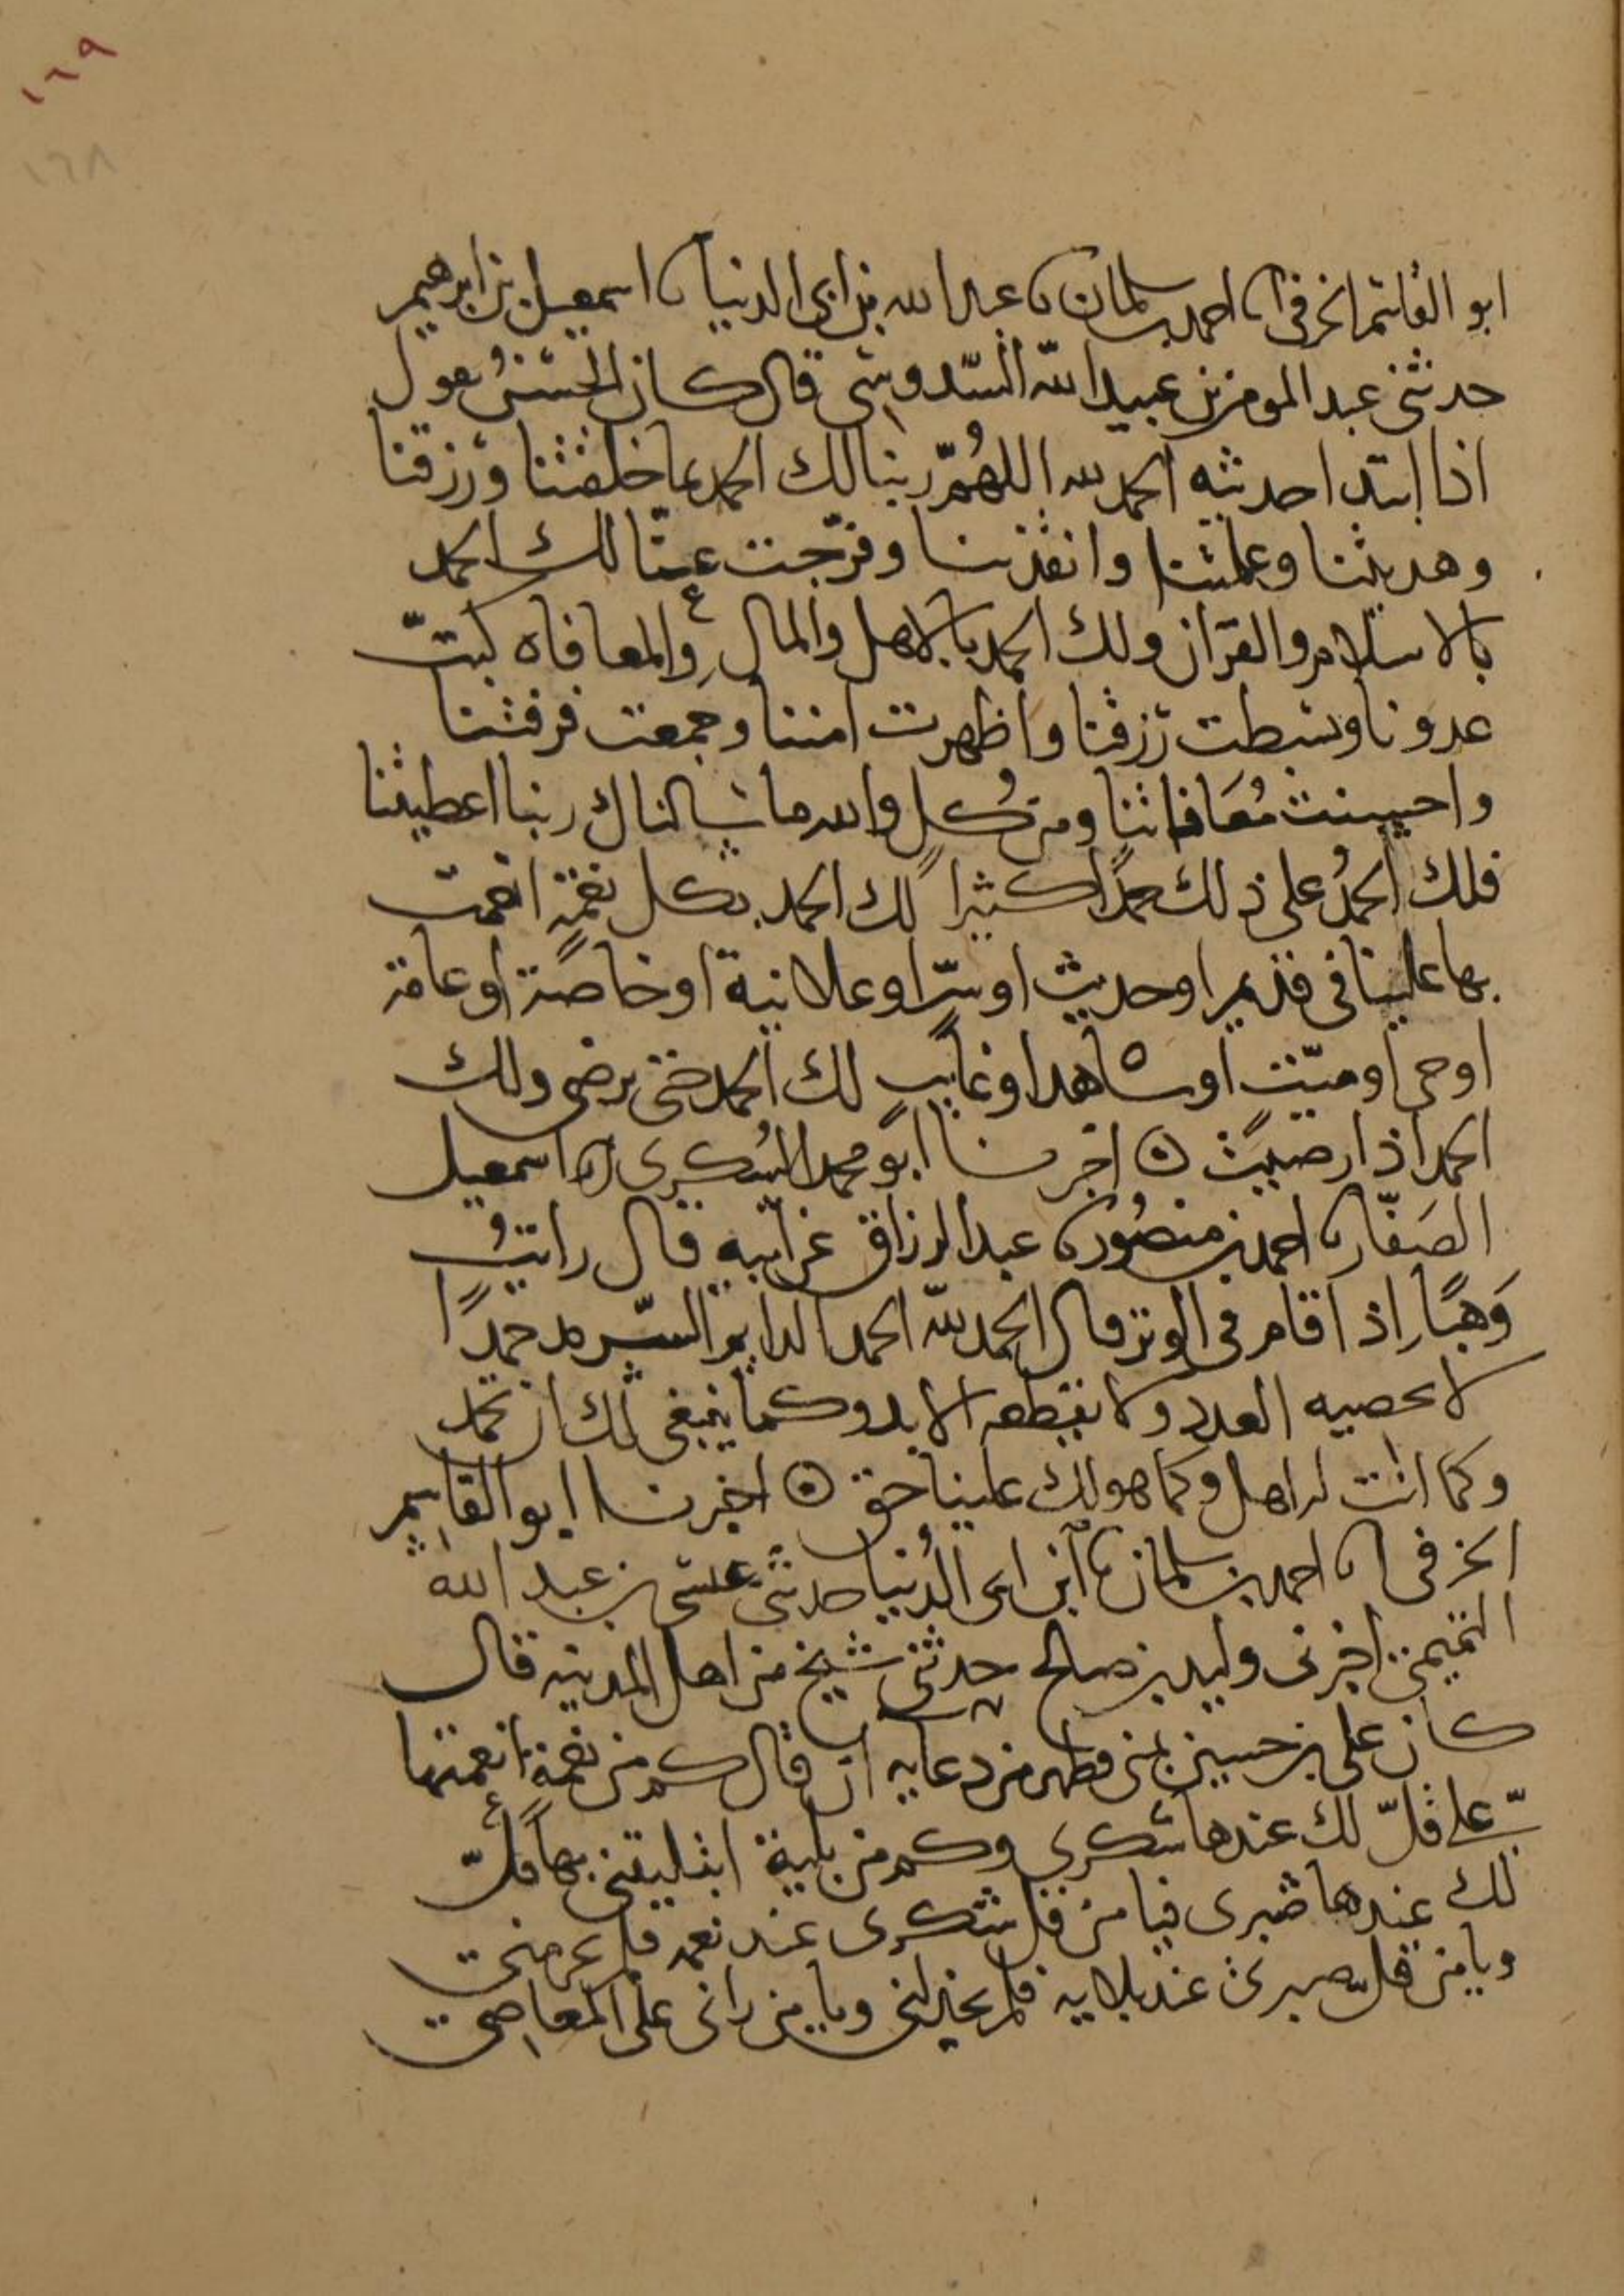 ١٦٩
١٦٨
ابو القاسم الخرفى نا احمد بن سلمان نا عبد الله بن ابى الدنيا نا اسمعيل بن ابرهيم
حدثنى عبد المومن بن عبيد الله السدوسى قال كان الحسن يقول
اذا ابتدا حديثه الحمد لله اللهم ربنا لك الحمد بما خلقتنا ورزقتنا
وهديتنا وعلمتنا وانقذتنا وفرجت عنا لك الحمد
بالاسلام والقران ولك الحمد بالاهل والمال والمعافاه كبتّ
عدونا وبسطت رزقنا واظهرت امننا وجمعت فرقتنا
واحسنت معافاتنا ومن كل والله ما سالناك ربنا اعطيتنا
فلك الحمدُ على ذلك حمدًا كثيرا لك الحمد بكل نعمة انعمت
بها علينا فى قديم او حديث او سرّ او علانية او خاصة او عامة
او حى او ميّت او شاهد او غايب لك الحمد حتى ترضى ولك
الحمد اذا رضيت ۞ اخبرنا ابو محمد السكرى انا اسمعيل
الصفّار نا احمد بن منصور نا عبد الرزاق عن ابيه قال رايتُ
وَهبًا اذا قام فى الوتر قال الحمد لله الحمد الدايم السرمد حمدًا
لا يحصيه العدد ولا يقطعه الابد وكما ينبغى لك ان تحمد
وكما انت له اهل وكما هو لك علينا حق ۞ اخبرنا ابو القاسم
الخرفى نا احمد بن سلمان نا ابن ابى الدُنيا حدثنى عيسى بن عبد الله
التميمى اخبرنى وليد بن صالح حدثنى شيخ من اهل المدينه قال
كان على بن حسين بمنى فظهر من دعايه ان قال كم من نعمة انعمتها
علىّ قلّ لك عندها شكرى وكم من بلية ابتليتنى بها قلّ
لك عندها صبرى فيا من قل شكرى عند نعمه فلم يحرمنى
ويا من قلّ صبرى عند بلايه فلم يخذلنى ويا من رانى على المعاصى